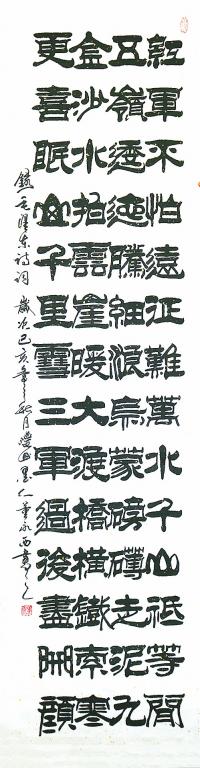 紅軍不怕遠征難萬水千山祗等閒
五嶺逶迤騰細浪烏蒙磅礴走泥丸
金沙水拍雲崖暖大渡橋橫鐵索寒
更喜岷山千里雪三軍過後盡開顏
錄毛澤東詩詞 歲次己亥年秋月 墨人董永西書